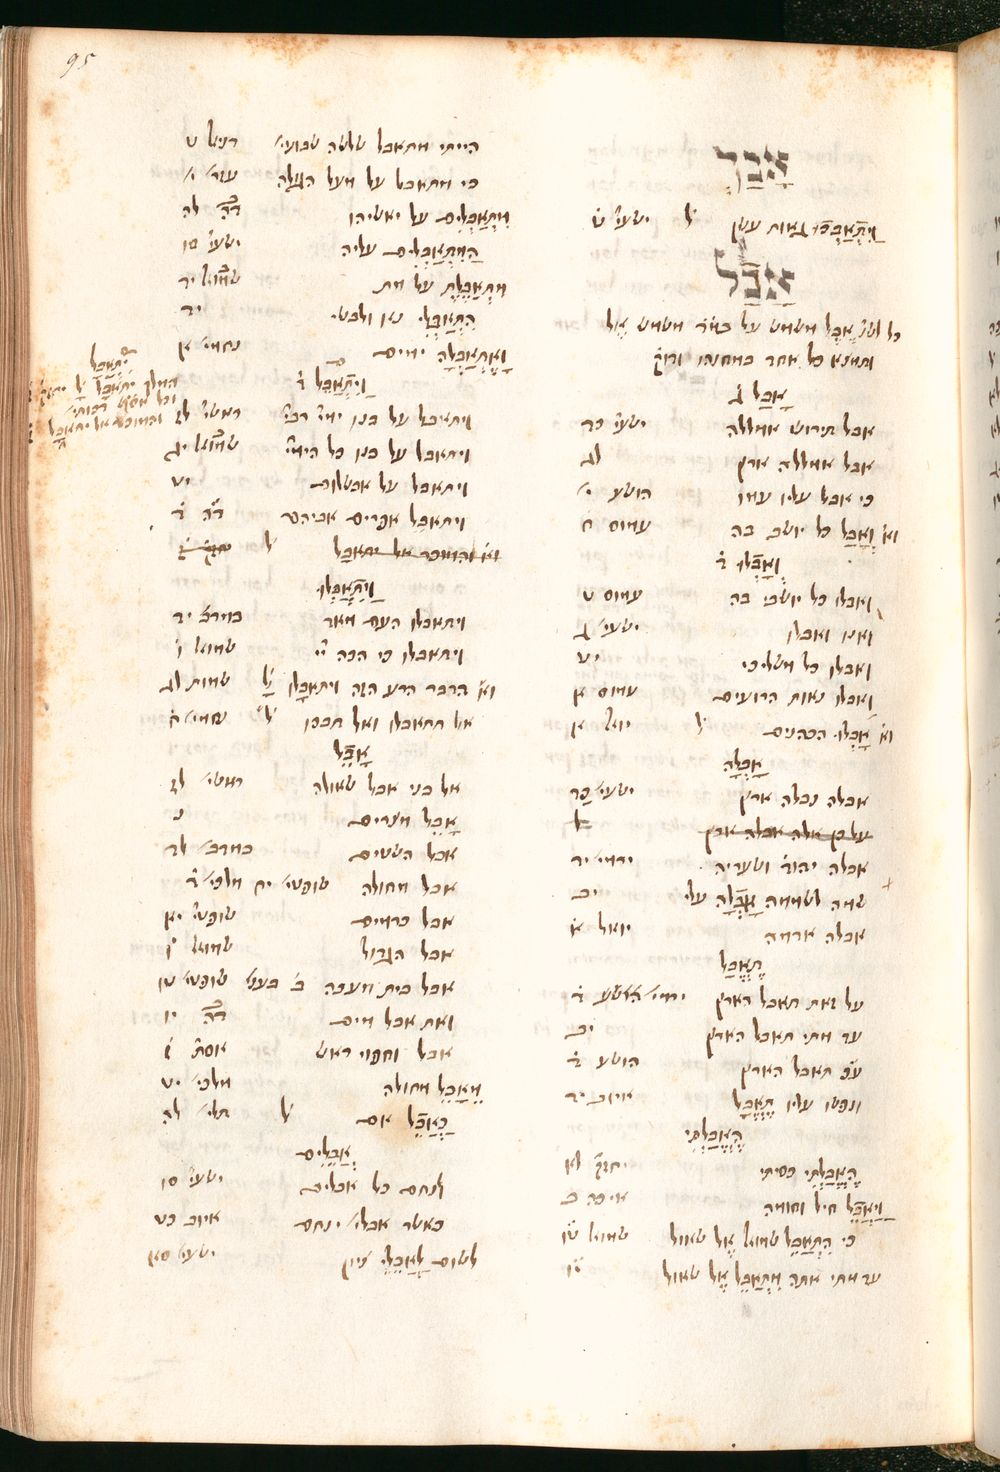 95
אָבַךְ
וַיִּתְאַבְּכוּ גאות עשן ל׳ ישעי׳ ט
אָבַל
כל לשׁ׳ אבל משמש על משמש אֶל
ותמצא כל אחד במחנהו
אָבַל ג
אבל תירוש אמללה ישעי׳ כד
אבל אמללה ארץ לג
כי אבל עליו עמו הושע י׳
וא׳ וְאָבַל כל יושב בה עמוס ח
וְאָבְלוּ ד
ואבלו כל יושבי בה עמוס ט
ואנו ואבלו ישעי׳ ג
ואבלו כל משליכי יט
ואבלו נאות הרועים עמוס א
וא׳ אָבְלוּ הכהנים ל׳ יואל א
אָבְלָה
אבלה נבלה ארץ ישעי׳ כד
על כן אלה אבלה ארץ
אבלה יהוד׳ ושעריה ירמי׳ יד
שמה לשממה אָבְלָה עלי יב
אבלה אדמה יואל א
תֶּאֱבַל
על זאת תאבל הארץ ירמי׳ ד
עד מתי תאבל הארץ יב
ע״כ תאבל הארץ הושע ד
ונפשו עליו תֶּאֱבָל איוב יד
הֶאֱבַלְתִּי
הֶאֱבַלְתִּי כסיתי יחזק׳ לא
וַיַּאֲבֶל חיל וחומה איכה ב
כי הִתְאַבֵּל שמואל אֶל שאול שמוא׳ טו
עד מתי אתה מִתְאַבֵּל אֶל שאול יו
הייתי מתאבל שלשה שבועי׳ דניאל י
כי מתאבל על מעל הגולה עזר׳ י׳
מִתְאַבְּלִים על יאשיהו דה׳ לה
הַמִּתְאַבְּלִים עליה ישעי׳ סו
מִתְאַבֶּלֶת על מת שמוא׳ יד
הִתְאַבְּלִי נא ולבשי יד
וָאֶתְאַבְּלָה ימים נחמי׳ א
וַיִּתְאַבֵּל ד
ויתאבל על בנו ימי׳ רבי׳ ראשי׳ לז
ויתאבל על בנו כל הימי׳ שמוא׳ יג
ויתאבל על אבשלום יט
ויתאבל אפרים אביהם דה׳ ז
וא׳ והמוכר אל יתאבל ל׳ יחזק׳ ז
וַיִּתְאַבְּלוּ
ויתאבלו העם מאד במדב׳ יד
ויתאבלו כי הכה יי׳ שמוא׳ ו
וא׳ הדבר הרע הזה ויתאבלו ל׳ שמות לג
אל תתאבלו ואל תבכו ל׳ נחמי׳ ח
אָבֵל
אל בני אבל שאולה ראשי׳ לז
אָבֵל מצרים נ
אבל השטים במדב׳ לג
אבל מחולה שופטי׳ ז מלכי׳ ד
אבל כרמים שופטי׳ יא
אבל הגדול שמוא׳ ו
אבל בית מעכה
ואת אבל מים דה׳ יו
אבל וחפוי ראש אסת׳ ו
מֵאָבֵל מחולה מלכי׳ יט
כַּאֲבֶל אם ל׳ תלי׳ לה
אֲבֵלִים
לנחם כל אבלים ישעי׳ סא
כאשר אבלי׳ ינחם איוב כט
לשום לַאֲבֵלֵי ציון ישעי׳ סא
יִתְאַבָּל
המלך יתאבל
והמוכר אל יתאבל